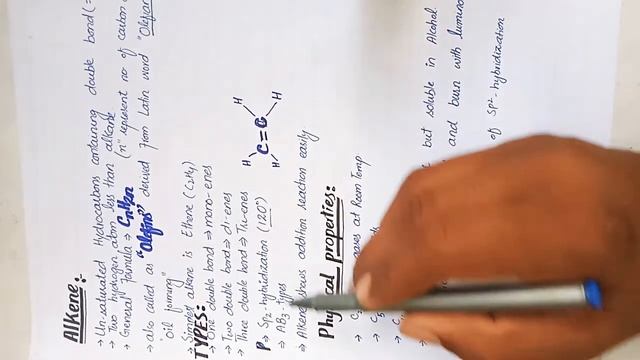 Alkene:-
→ Un-saturated Hydrocarbons containing double bond (=
→ Two hydrogen atom less than alkane
→ General Formula → CnH2n ("n" represent no of carbon
→ also called as "Olefins" derived from Latin word "Olefian
"oil forming"
→ Simplest alkene is Ethene (C2H4)
TYPES:-
→ One double bond ⇒ mono-enes
→ Two double bond ⇒ di-enes
→ Three double bond ⇒ Tri-enes
P → Sp2-hybridization (120°)
→ AB3-types
→ Alkene shows addition reaction easily
H H
C=C
H H
Physical properties:
→ C2 gases at Room Temp
→ C5
but soluble in Alcohol
and burn with lumino
of Sp2-hybridization